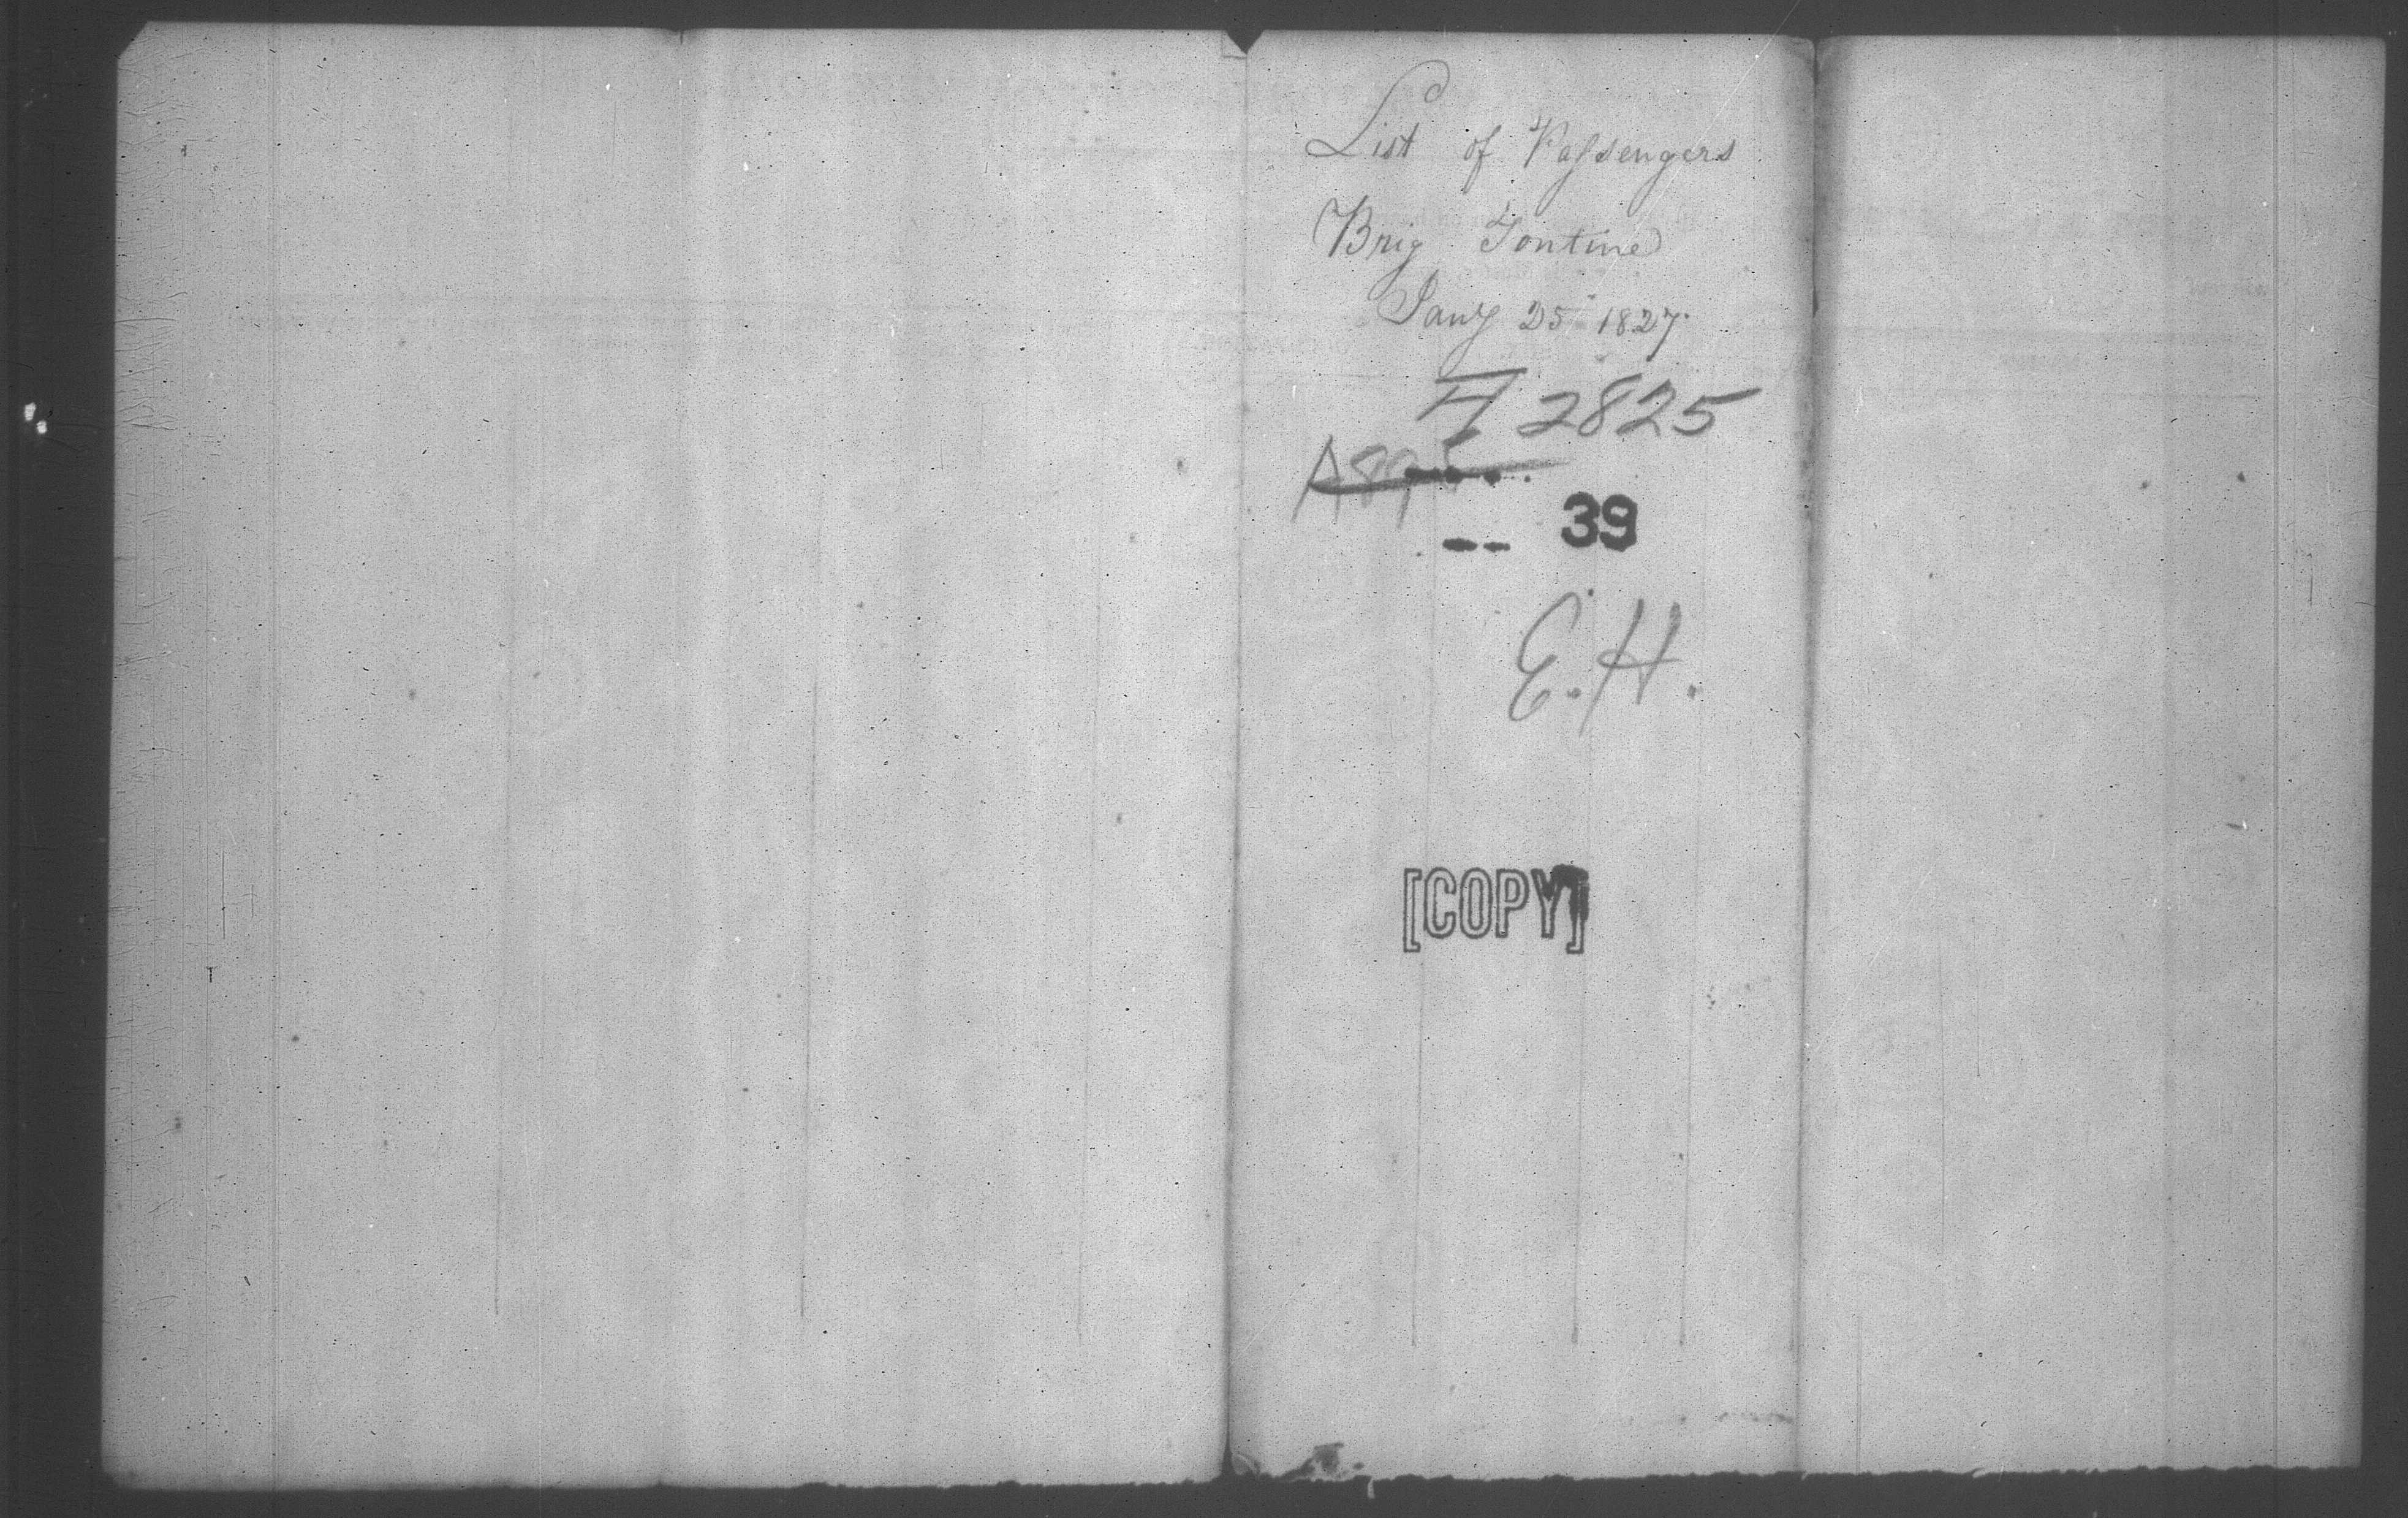 List of Passengers
Brig Tontine
Jany 25 1827
2825
-- 39
E.H.
[COPY]